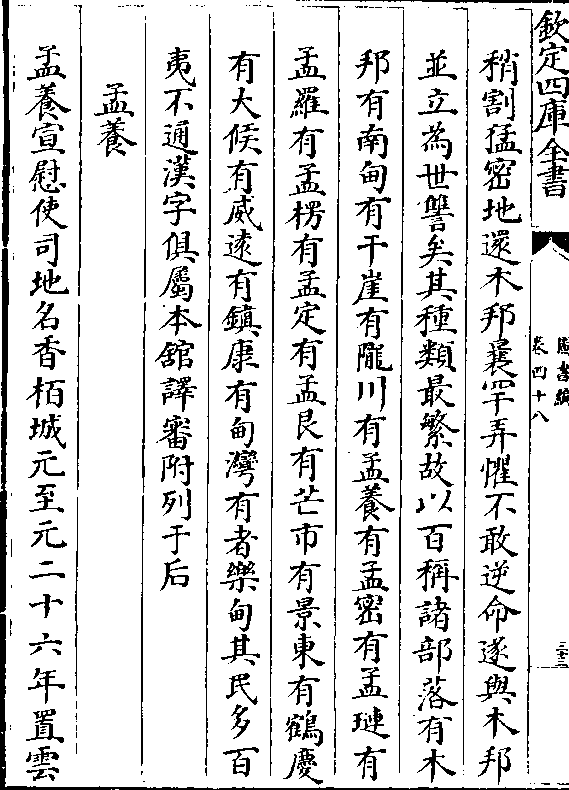 欽定四庫全書
圖書編
卷四十八
三十三
稍割猛密地還木邦曩罕弄懼不敢逆命遂與木邦
並立為世讐矣其種類最繁故以百稱諸部落有木
邦有南甸有干崖有隴川有孟養有孟密有孟璉有
孟羅有孟楞有孟定有孟艮有芒市有景東有鶴慶
有大候有威遠有鎮康有甸灣有者樂甸其民多百
夷不通漢字俱屬本舘譯審附列于后
孟養
孟養宣慰使司地名香栢城元至元二十六年置雲